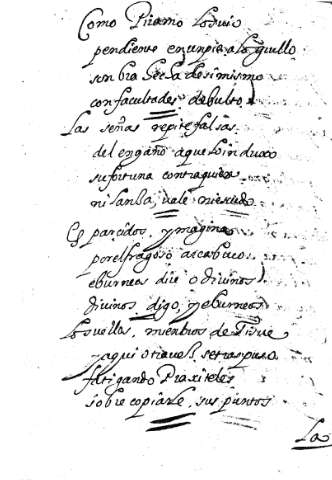 Como Piramo lo vio
pendiente en un pie a lo grullo
sonbra hecha de si mismo
con facultades de bulto)
Las señas repite falsas
del engaño a que lo induxo
su fortuna contra quien
ni lansa, vale ni escudo
Es parcidos, ymagina
por el fragoso arcabuco
eburneos dire o divinos)
divinos digo, y eburneos
Los vellos, mienbros de Tisve
y aqui otra ves, se traspuso
fatigando Praxiteles
sobre copiarle, sus puntos
La